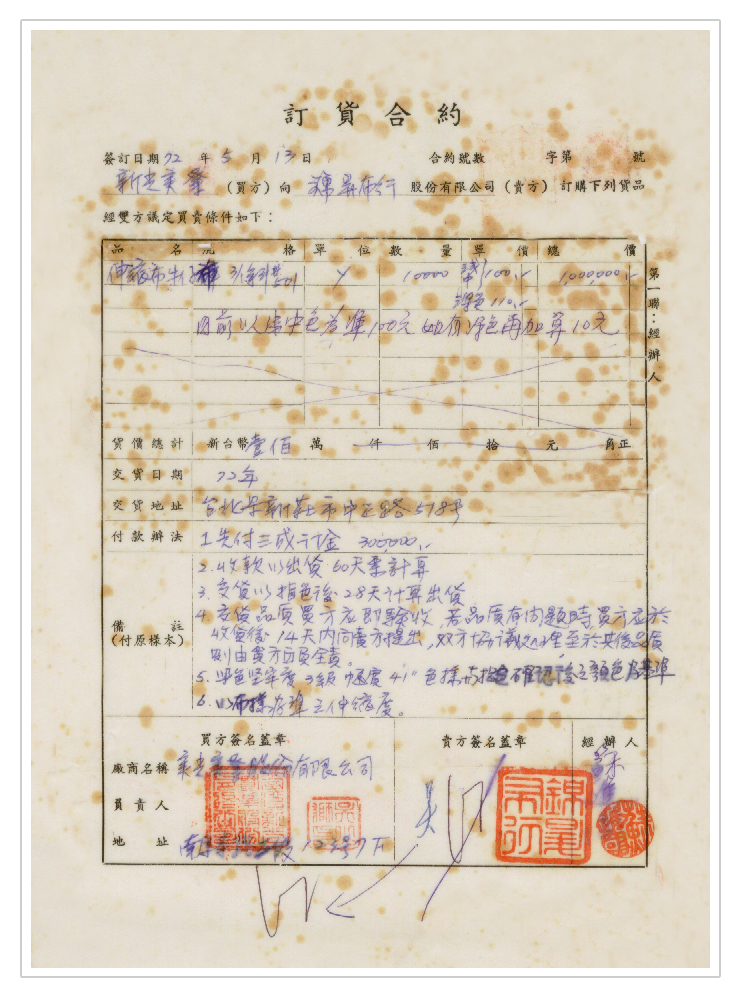 訂貨合約
簽訂日期72年5月13日 合約號數 字第 號
新光實業(買方)向 錦昇布行 股份有限公司(賣方)訂購下列貨品
經雙方議定買賣條件如下：
品名 規格 單位 數量 單價 總價
伸縮布牛仔 Y 10000 100,- 1,000,000,-
110,-
目前以淺中色為準100元 如有深色再加算10元
第一聯：經辦人
貨價總計 新台幣壹佰萬 仟 佰 拾 元 角正
交貨日期 72年
交貨地址 台北縣新莊市中正路578号
付款辦法 1.先付三成訂金 300,000,-
2.收款以出貨60天票計算
3.交貨以指色後28天計算出貨
備註
(付原樣本)
4.交貨品質買方应即驗收,若品質有问題時買方应於
收貨後14天内向賣方提出,双方协議処理至於其後品質
則由買方自負全責。
5.染色坚牢度3級 幅度41" 色樣 指色確認後之顏色为基準
6.以布樣为準之伸縮度。
買方簽名蓋章 賣方簽名蓋章 經辦人
廠商名稱 股份有限公司
負責人
地址 12号7F
錦昇布行